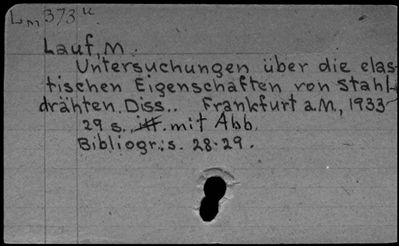 Lm 373 u.
Lauf, M.
Untersuchungen über die elas-
tischen Eigenschaften von Stahl-
drähten. Diss.. Frankfurt a.M., 1933
29 s. mit Abb.
Bibliogr.: s. 28-29.